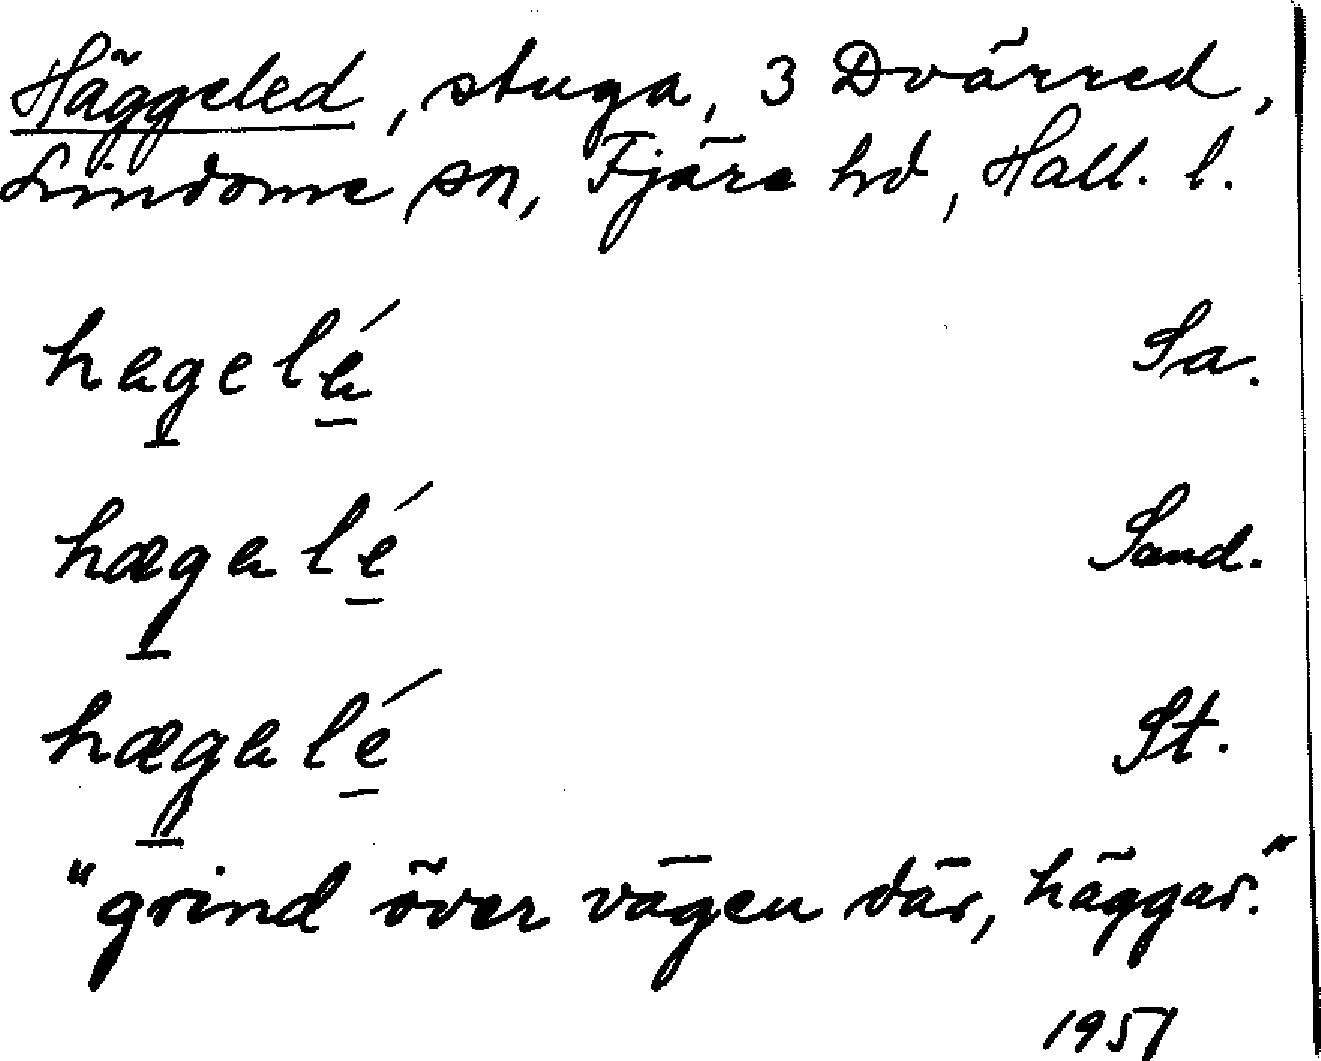 Häggeled, stuga, 3 Dvärred,
Lindome sn, Fjäre hd, Hall. l.
hagelé Sa.
hægalé Sand.
hægalé St.
"grind över vägen där, häggar."
1951